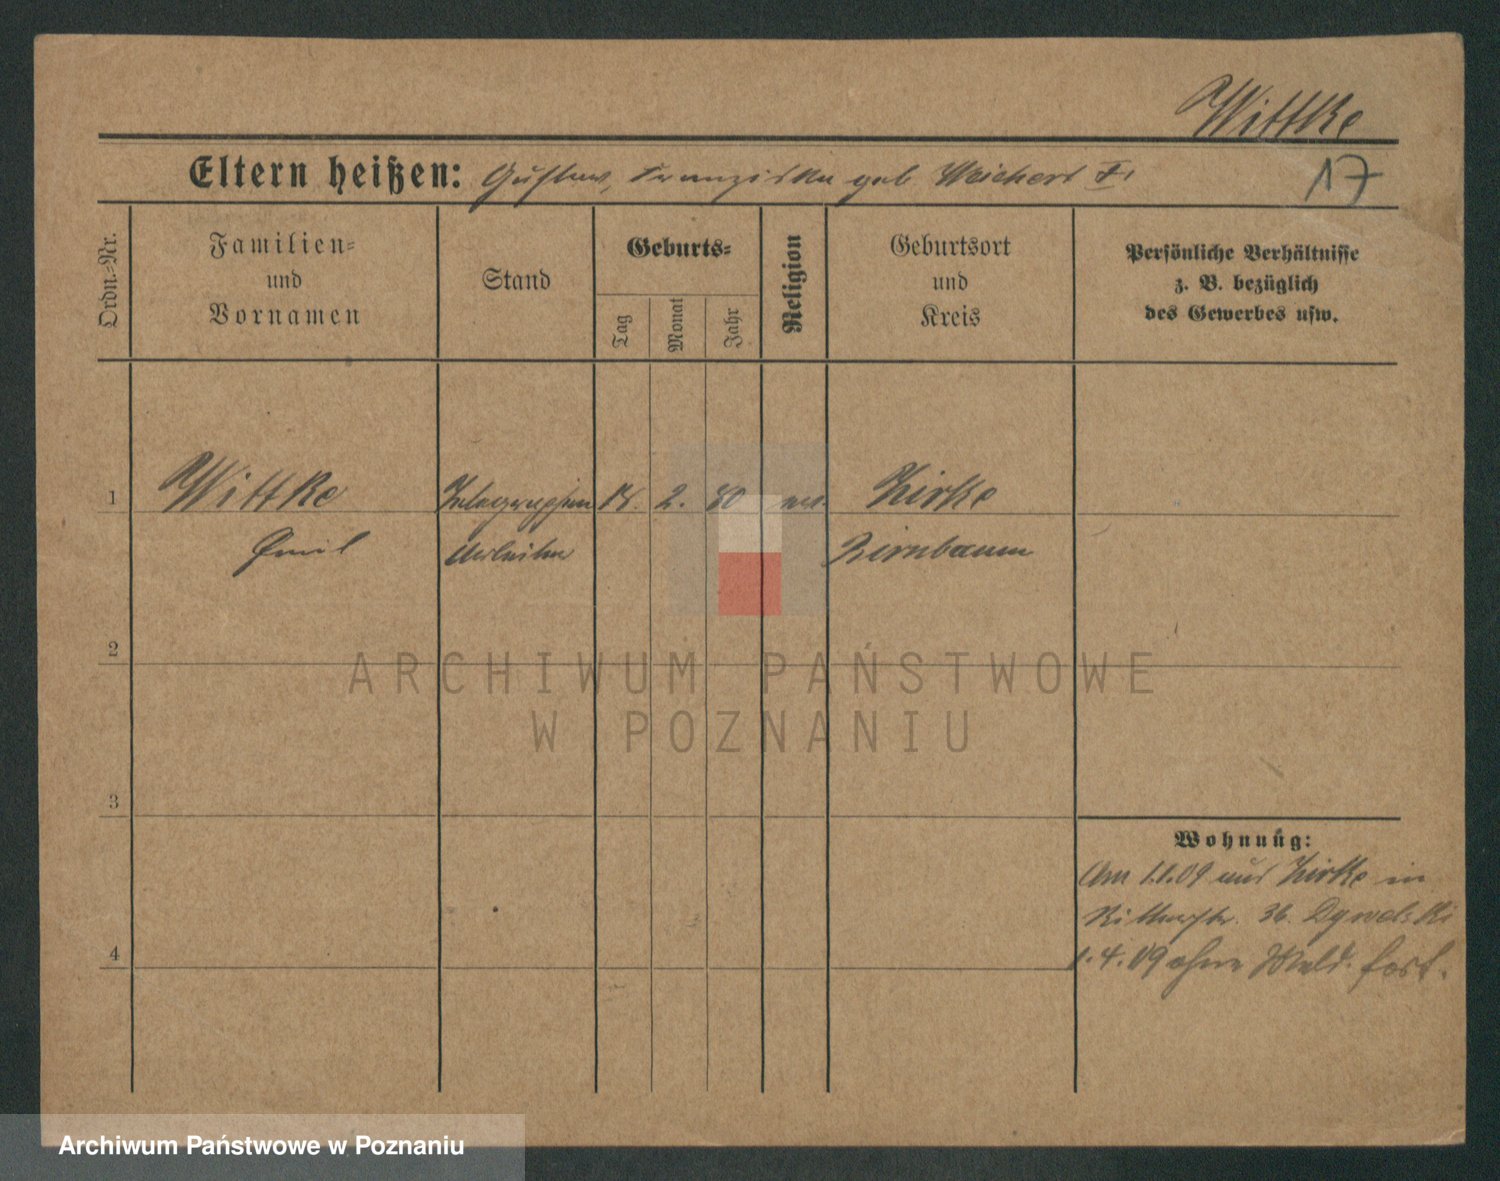 Wittke
Eltern heißen: Gustav, Franziska geb. Weichert
17
Ordn.-Nr.
Familien-
und
Vornamen
Stand
Geburts-
Tag
Monat
Jahr
Religion
Geburtsort
und
Kreis
Persönliche Verhältnisse
z. B. bezüglich
des Gewerbes usw.
1 Wittke 2. 80 Zirke
Emil Birnbaum
2
3
4
Wohnung:
Am 1.1.09 aus Zirke in
Ritterstr. 36.
1.4.09 ohne Meld. fort.
ARCHIWUM PAŃSTWOWE
W POZNANIU
Archiwum Państwowe w Poznaniu